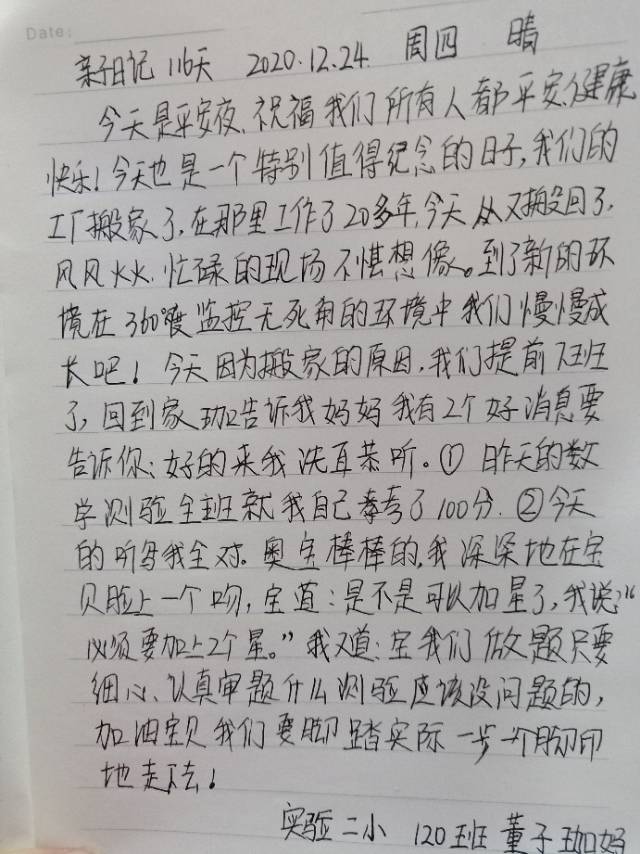 Date:
亲子日记 116天 2020.12.24. 周四 晴
今天是平安夜、祝福我们所有人都平安、健康
快乐!今天也是一个特别值得纪念的日子,我们的
工厂搬家了,在那里工作了20多年,今天从又搬回了,
风风火火、忙碌的现场不堪想像。到了新的环
境在360°度监控无死角的环境中我们慢慢成
长吧!今天因为搬家的原因,我们提前下班
了,回到家珈告诉我妈妈我有2个好消息要
告诉你:好的来我洗耳恭听。① 昨天的数
学测验全班就我自己考了100分.②今天
的听写我全对。奥宝棒棒的,我深深地在宝
贝脸上一个吻,宝道:是不是可以加星了,我说:“
必须要加上2个星。”我又道:宝我们做题只要
细心、认真审题什么测验应该没问题的,
加油宝贝我们要脚踏实际一步一个脚印
地走下去!
实验二小 120班 董子珈妈